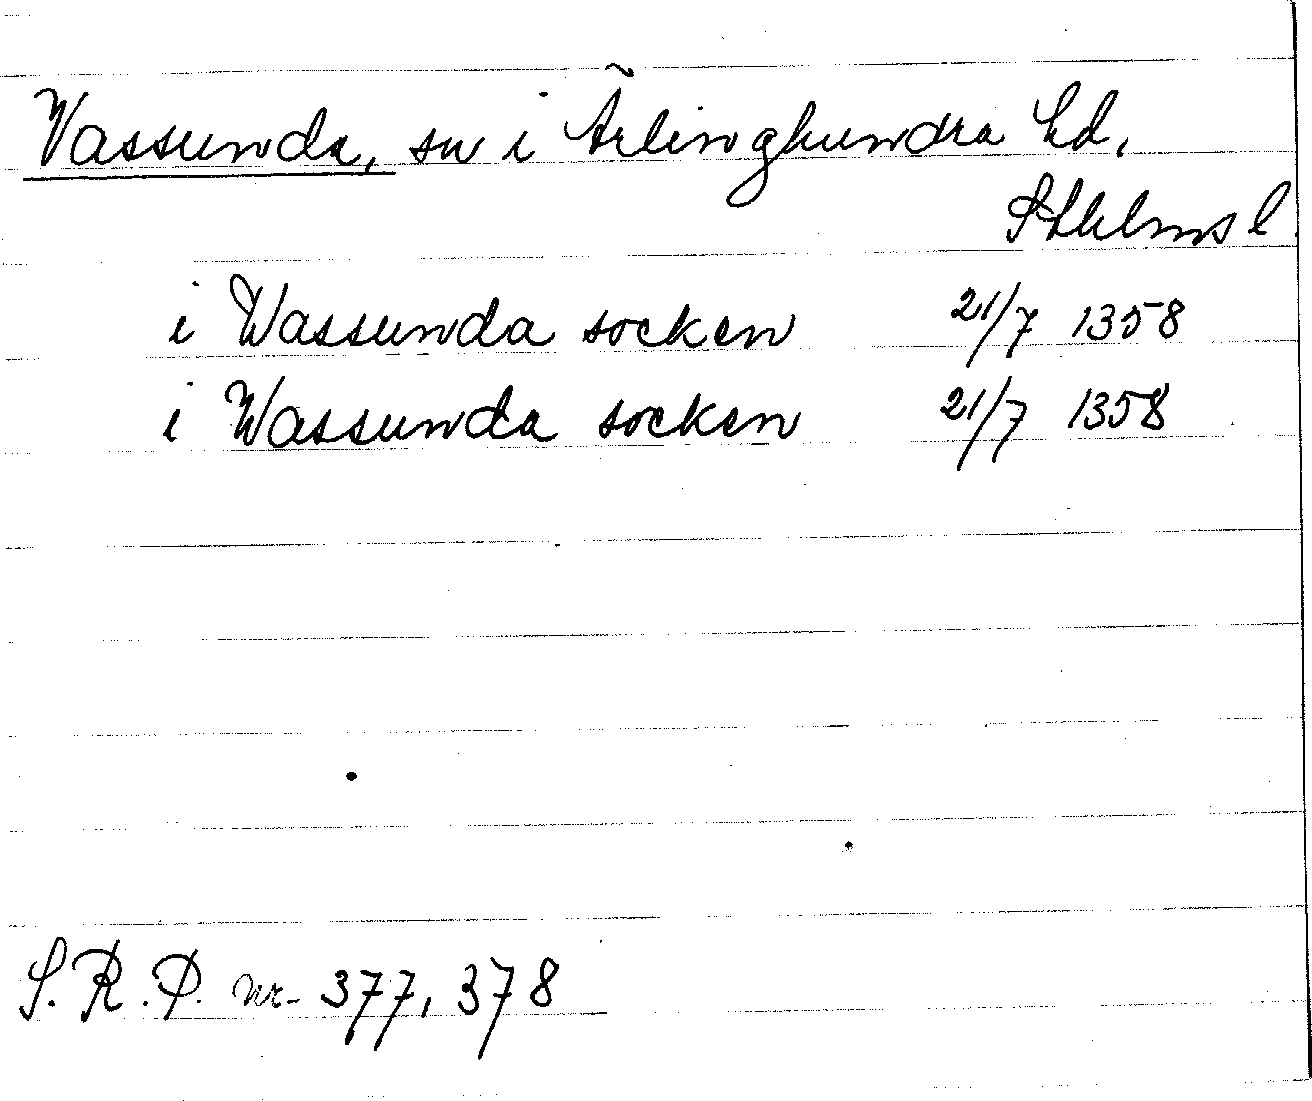 Vassunda, sn i Ärlinghundra hd,
Sthlms l
i Wassunda socken 21/7 1358
i Wassunda socken 21/7 1358
S.R.P. nr. 377, 378